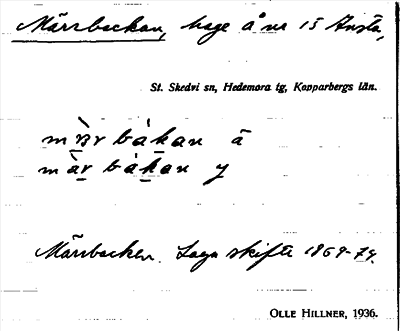 Märrbackan, hage å nr 15 Ansta,
St. Skedvi sn, Hedemora tg, Kopparbergs län.
mær bákan ä
màr bákan y
Märrbacken. Laga skifte 1869-74.
OLLE HILLNER, 1936.